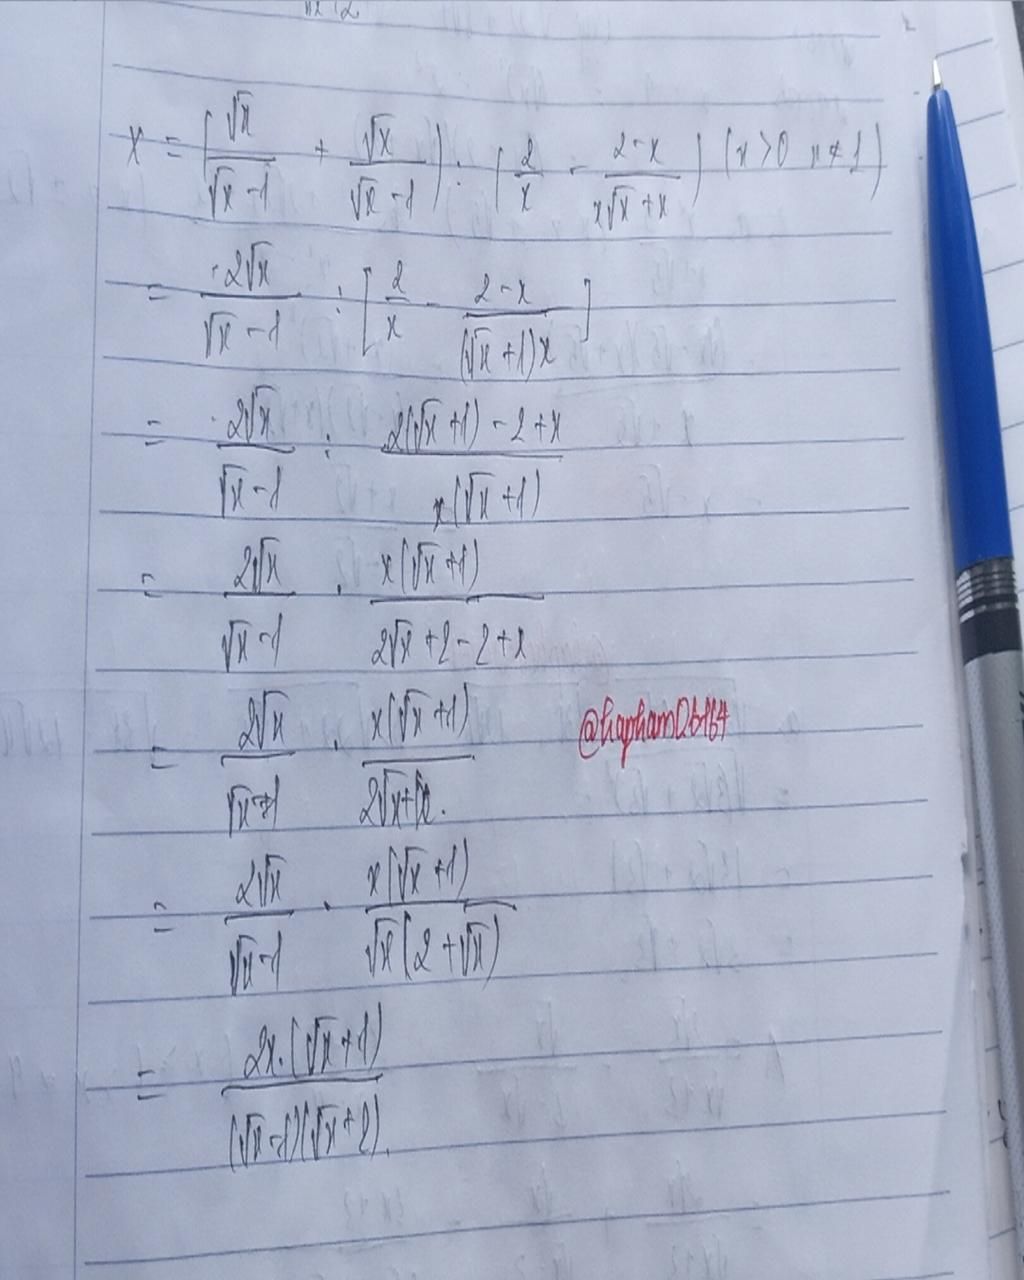 x = (√x/(√x -1) + √x/(√x -1)) : (2/x - (2-x)/(x√x +x)) (x >0 x ≠ 1)
= 2√x/(√x -1) : [2/x - (2-x)/((√x +1)x)]
= 2√x/(√x -1) : (2(√x +1) -2 +x)/(x(√x +1))
= 2√x/(√x -1) . x(√x +1)/(2√x +2 -2 +x)
= 2√x/(√x -1) . x(√x +1)/(2√x +x).
@hapham026164
= 2√x/(√x -1) . x(√x +1)/(√x(2 +√x))
= 2x.(√x +1)/((√x -1)(√x +2)).